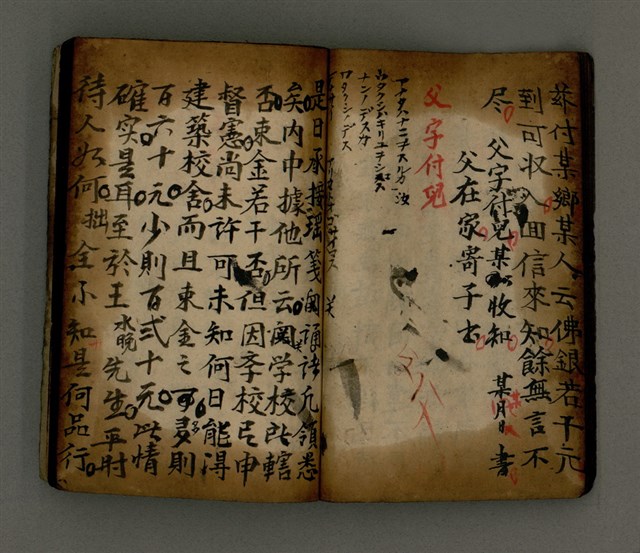 茲付某鄉某人云佛銀若干元
到可收入回信來知餘無言不
尽 父字付兒某收知 某月日 書
父在家寄子去
父字付兒
アナタハナニヲスルカ 汝
ナンノデスカ
ワタクシノデス
是日承接瑤箋閱誦諸凡領悉
矣內申據他所云閱学校此轄
否束金若干否但因本校已申
督憲尚未許可未知何日能淂
建築校舍而且束金之可多則
百六十元少則百弍十元此情
確实是耳至於王水晚先生平時
待人如何拙全不知是何品行